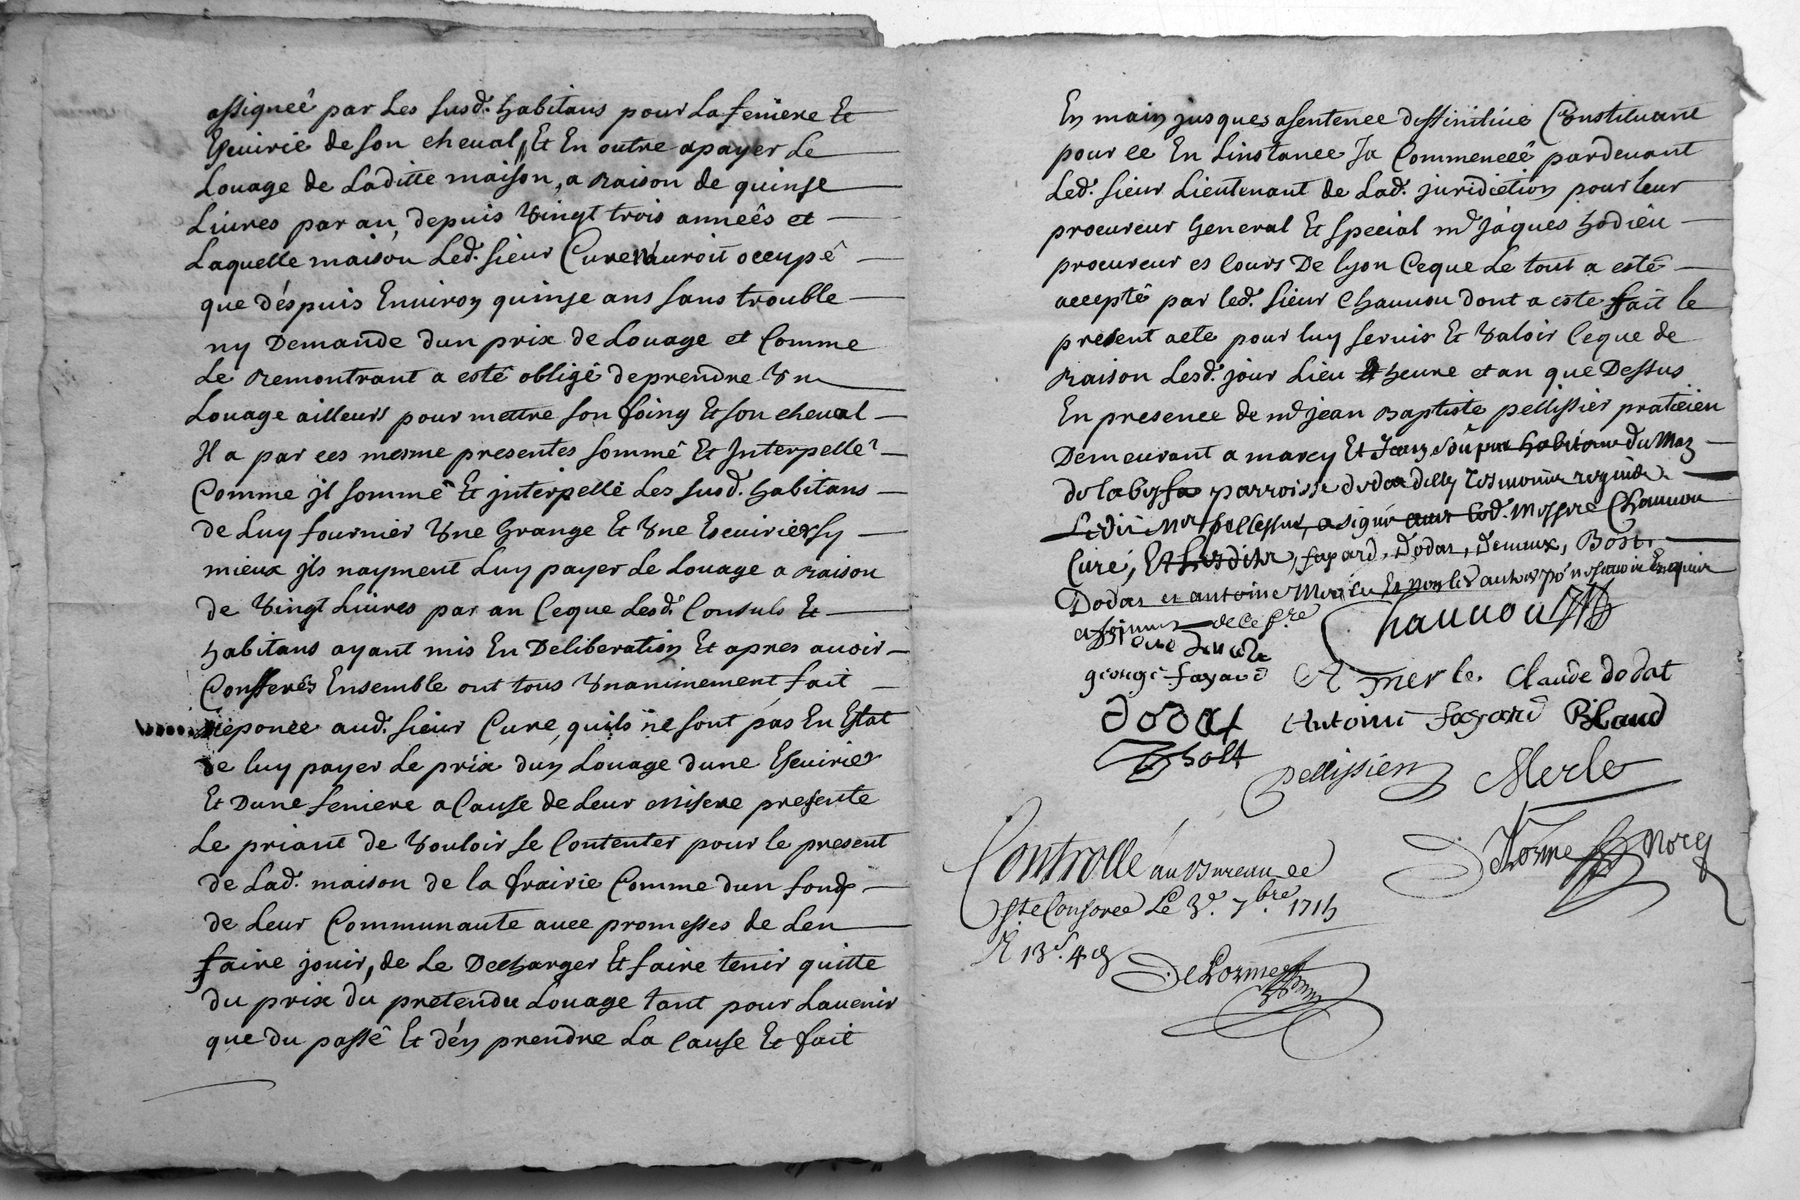 assigneé par Les susd. habitans pour La feniere Et
Escuirie de son cheual, Et En outre apayer Le
Louage de Laditte maison, a Raison de quinse
Liures par an, depuis Vingt trois anneés et
Laquelle maison Led. sieur Curé N'auroit occupé
que déspuis Enuiron quinse ans sans trouble
ny Demande dun prix de Louage et Comme
Le Remontrant a esté obligé deprendre Vn
Louage ailleurs pour mettre son foing Et son cheual
Il a par ces mesme presentes sommé Et Interpellé
Comme jl sommé Et jnterpellé Les susd. habitans
de Luy fournier Vne Grange Et Vne Escuirie sy
mieux jls nayment Luy payer Le Louage a Raison
de Vingt Liures par an Ceque Lesd. Consuls Et
habitans ayant mis En Deliberation Et apres auoir
Confferéz Ensemble ont tous Vnanimement fait
Reponce aud. sieur Cure, quils ne sont pas En Estat
de luy payer Le prix dun Louage dune Escuirie
Et Dune feniere a Cause de Leur Misere presente
Le priant de Vouloir se Contenter pour le present
de Lad. maison de la frairie Comme dun fonds
de Leur Communauté auec promesses de Len
faire jouir, de Le Decharger Et faire tenir quitte
du prix du pretendu Louage tant pour Lauenir
que du passé Et d'en prendre La Cause Et fait
En main jusques a sentence deffinitiue Constituant
pour ce En Linstance Ja Commenceé pardeuant
Led. sieur Lieutenant de Lad. juridiction pour leur
procureur General Et special mr Jâques hodieu
procureur es Cours De lyon Ceque Le tout a esté
accepté par led. sieur Chauuou dont a este fait le
present acte pour luy seruir Et Valoir Ceque de
Raison Lesd. jour Lieu Et heure et an que Dessus
En presence de mr jean Baptiste pellissier praticien
Demeurant a marcy Et Jean habitant du Mas
de parroisse tesmoins requis
Ledit Mr pellissier, a signé auec Led. Messire Chauuou
Curé, Et Lesdits, fayard, Dodat, Bost,
Dodat et antoine Merle Et non les autres
de ce
Chauuou
george fayard Merle. Claude dodat
dodat Antoine fayard
pellissier Merle
Delorme
Controllé au Bureau de
Ste Consorce Le 3e. 7bre. 1715
R 13s. 4d
DeLorme